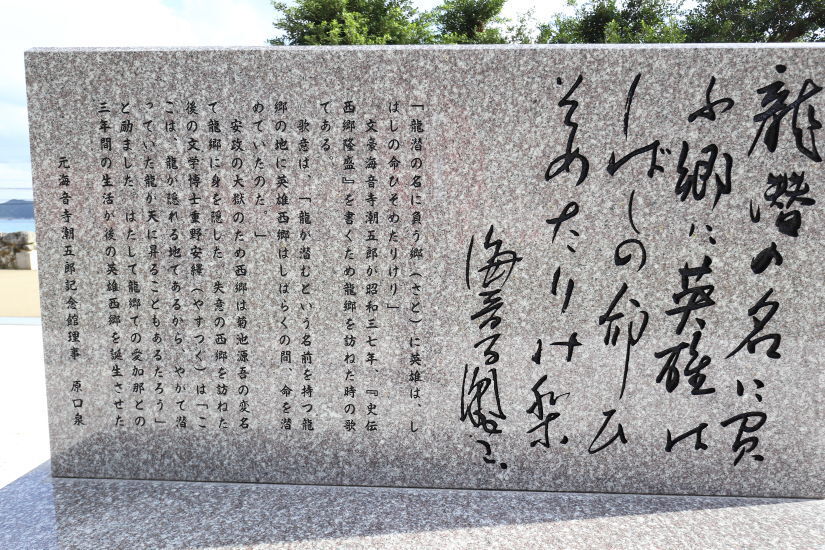 龍潜の名に負
ふ郷に英雄は
しばしの命ひ
そめたりけ里
海音寺潮五郎
「龍潜の名に負う郷(さと)に英雄は、し
ばしの命ひそめたりけり」
文豪海音寺潮五郎が昭和三七年、『史伝
西郷隆盛』を書くため龍郷を訪ねた時の歌
である。
歌意は、「龍が潜むという名前を持つ龍
郷の地に英雄西郷はしばらくの間、命を潜
めていたのだ。」
安政の大獄のため西郷は菊池源吾の変名
で龍郷に身を隠した。失意の西郷を訪ねた
後の文学博士重野安繹(やすつぐ)は「こ
こは、龍が隠れる地であるから、やがて潜
っていた龍が天に昇ることもあるだろう」
と励ました。はたして龍郷での愛加那との
三年間の生活が後の英雄西郷を誕生させた
元海音寺潮五郎記念館理事 原口泉